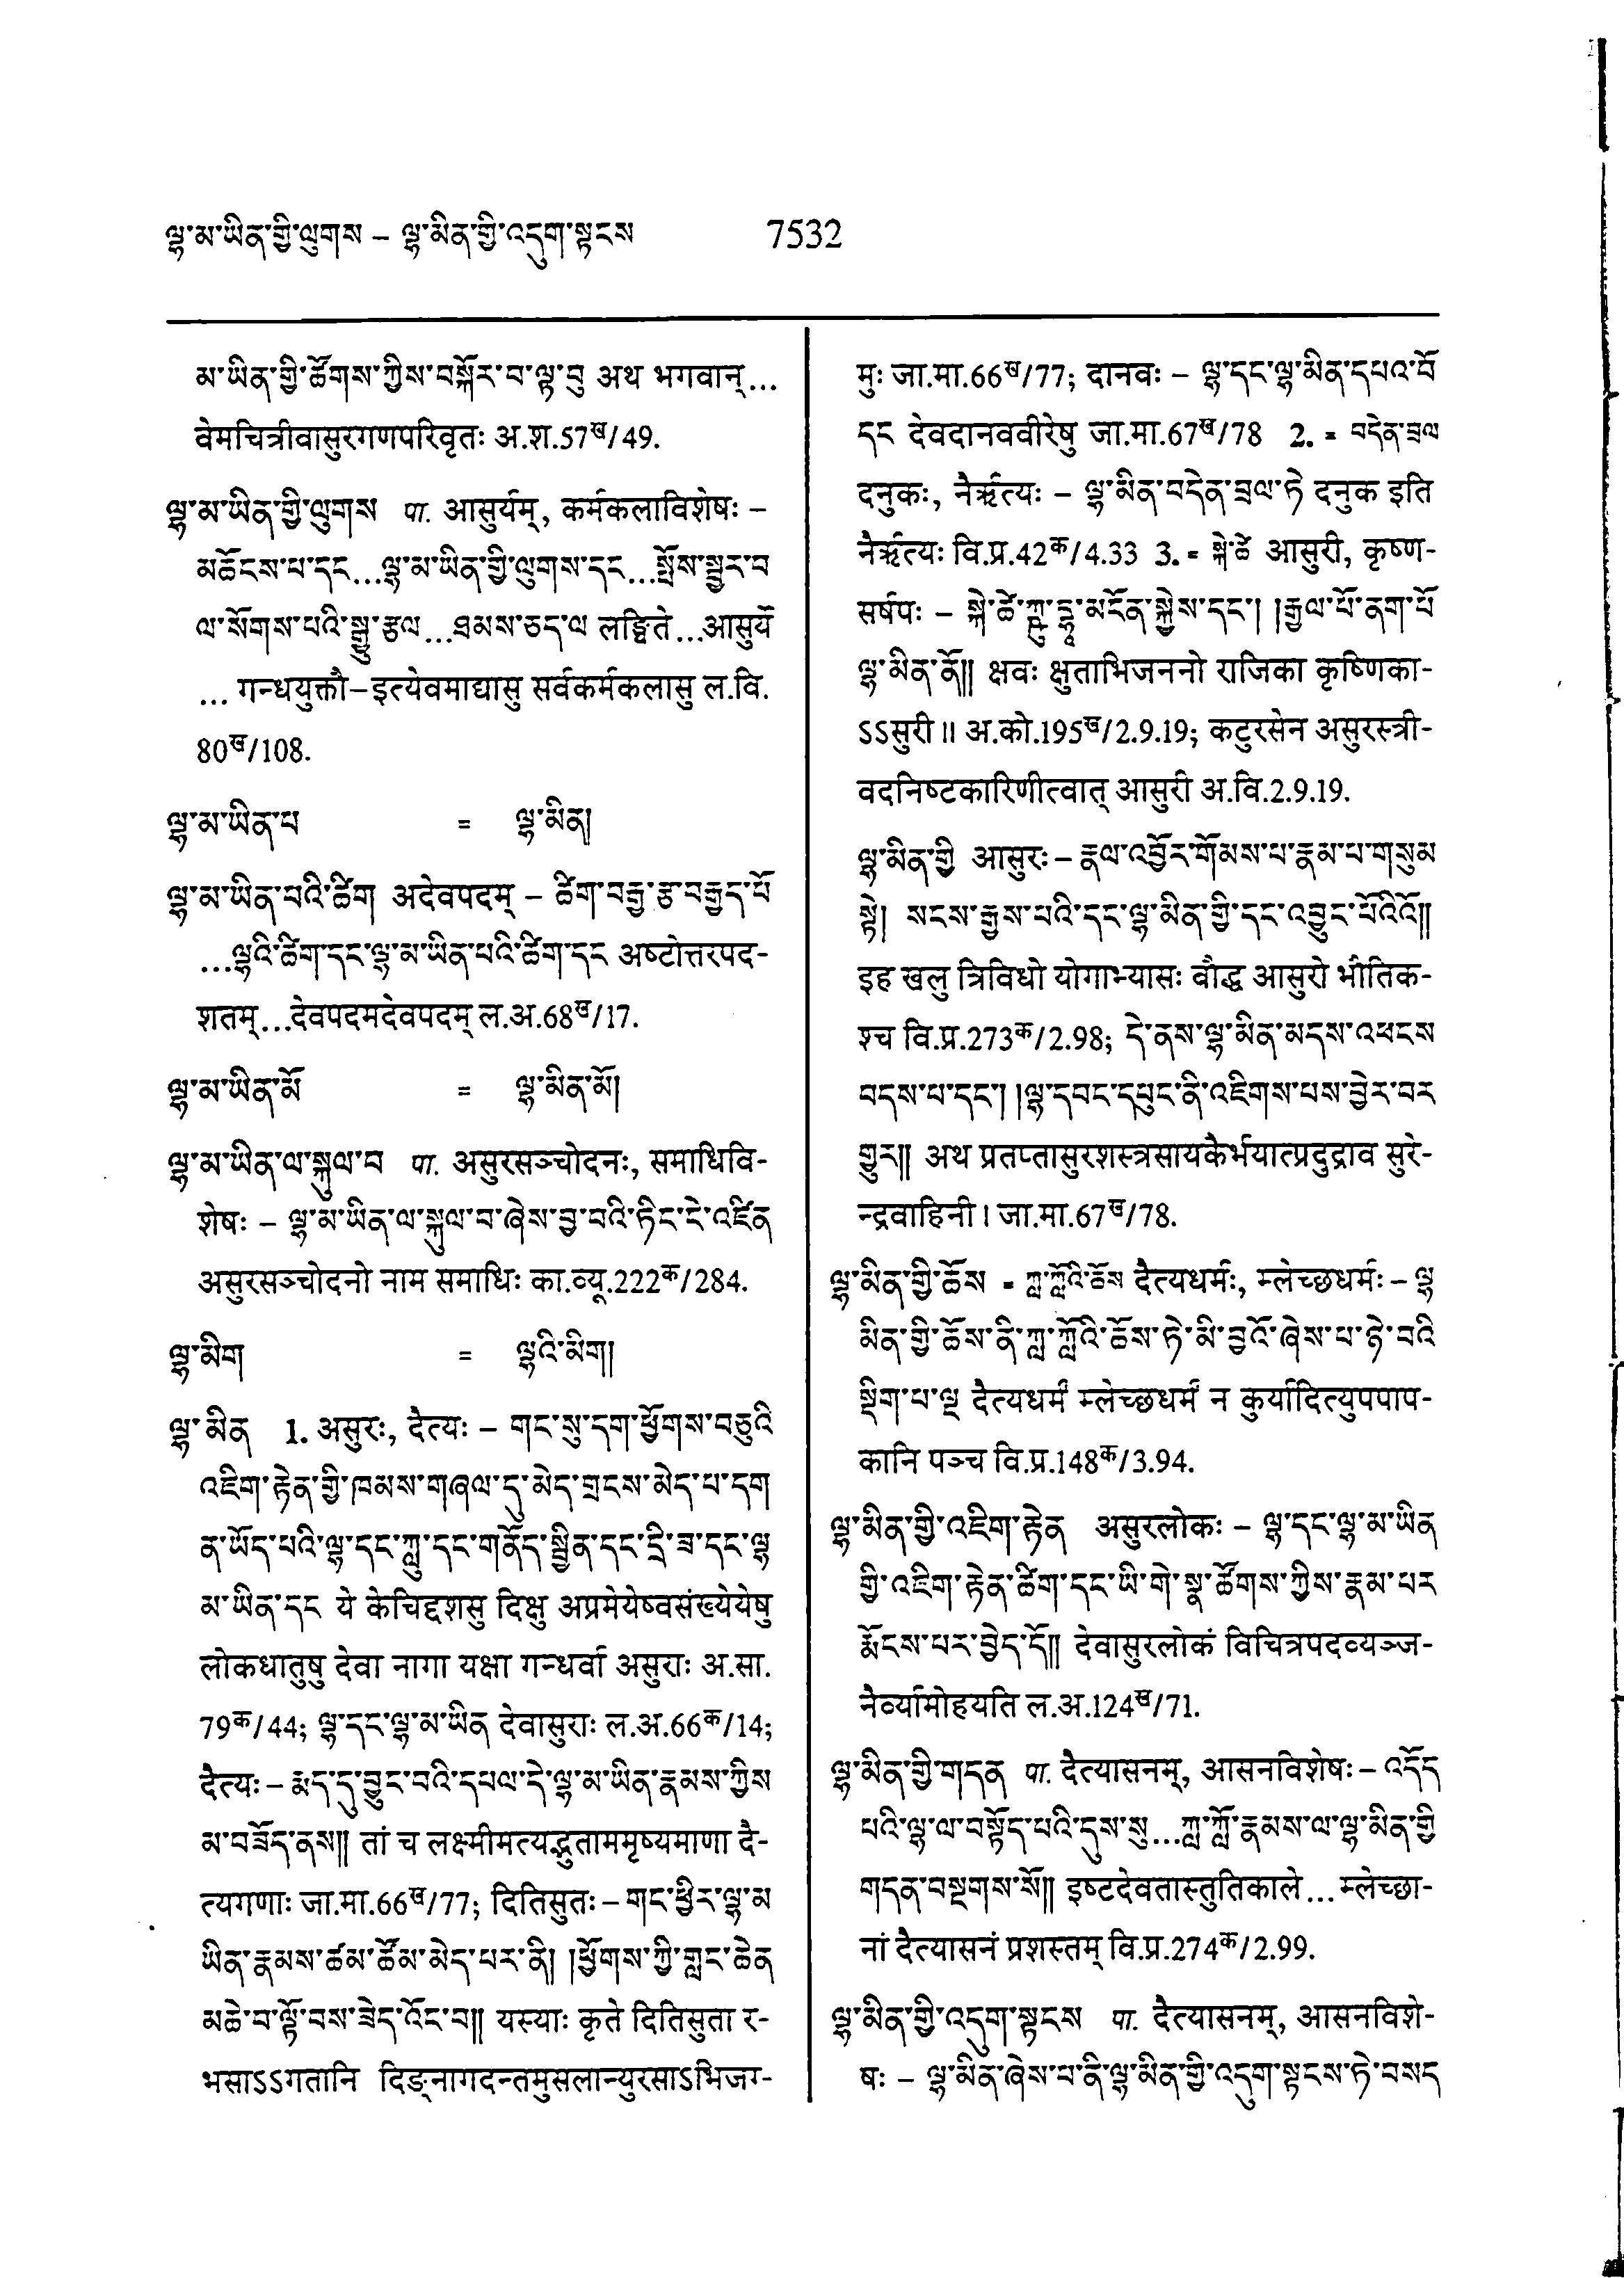 ལྷ་མ་ཡིན་གྱི་ལུགས – ལྷ་མིན་གྱི་འདུག་སྟངས 7532
མ་ཡིན་གྱི་ཚོགས་ཀྱིས་བསྐོར་བ་ལྟ་བུ अथ भगवान्...
वेमचित्रीवासुरगणपरिवृतः अ.श.57ख/49.
ལྷ་མ་ཡིན་གྱི་ལུགས पा. आसुर्यम्, कर्मकलाविशेषः –
མཆོངས་པ་དང...ལྷ་མ་ཡིན་གྱི་ལུགས་དང...སྤོས་སྦྱར་བ
ལ་སོགས་པའི་སྒྱུ་རྩལ...ཐམས་ཅད་ལ लङ्घिते...आसुर्ये
... गन्धयुक्तौ–इत्येवमाद्यासु सर्वकर्मकलासु ल.वि.
80ख/108.
ལྷ་མ་ཡིན་པ = ལྷ་མིན།
ལྷ་མ་ཡིན་པའི་ཚིག अदेवपदम् – ཚིག་བརྒྱ་རྩ་བརྒྱད་པོ
...ལྷའི་ཚིག་དང་ལྷ་མ་ཡིན་པའི་ཚིག་དང अष्टोत्तरपद-
शतम्...देवपदमदेवपदम् ल.अ.68ख/17.
ལྷ་མ་ཡིན་མོ = ལྷ་མིན་མོ།
ལྷ་མ་ཡིན་ལ་སྐུལ་བ पा. असुरसञ्चोदनः, समाधिवि-
शेषः – ལྷ་མ་ཡིན་ལ་སྐུལ་བ་ཞེས་བྱ་བའི་ཏིང་ངེ་འཛིན
असुरसञ्चोदनो नाम समाधिः का.व्यू.222क/284.
ལྷ་མིག = ལྷའི་མིག།
ལྷ་མིན 1. असुरः, दैत्यः – གང་སུ་དག་ཕྱོགས་བཅུའི
འཇིག་རྟེན་གྱི་ཁམས་གཞལ་དུ་མེད་གྲངས་མེད་པ་དག
ན་ཡོད་པའི་ལྷ་དང་ཀླུ་དང་གནོད་སྦྱིན་དང་དྲི་ཟ་དང་ལྷ
མ་ཡིན་དང ये केचिद्दशसु दिक्षु अप्रमेयेष्वसंख्येयेषु
लोकधातुषु देवा नागा यक्षा गन्धर्वा असुराः अ.सा.
79क/44; ལྷ་དང་ལྷ་མ་ཡིན देवासुराः ल.अ.66क/14;
दैत्यः – རྨད་དུ་བྱུང་བའི་དཔལ་དེ་ལྷ་མ་ཡིན་རྣམས་ཀྱིས
མ་བཟོད་ནས།། तां च लक्ष्मीमत्यद्भुताममृष्यमाणा दै-
त्यगणाः जा.मा.66ख/77; दितिसुतः – གང་ཕྱིར་ལྷ་མ
ཡིན་རྣམས་ཚམ་ཚོམ་མེད་པར་ནི། །ཕྱོགས་ཀྱི་གླང་ཆེན
མཆེ་བ་ལྟོ་བས་ཟེད་འོང་བ།། यस्याः कृते दितिसुता र-
भसाऽऽगतानि दिङ्नागदन्तमुसलान्युरसाऽभिजग्-
मुः जा.मा.66ख/77; दानवः – ལྷ་དང་ལྷ་མིན་དཔའ་བོ
དང देवदानववीरेषु जा.मा.67ख/78 2. = བདེན་བྲལ
दनुकः, नैरृत्यः – ལྷ་མིན་བདེན་བྲལ་ཏེ दनुक इति
नैरृत्यः वि.प्र.42क/4.33 3. = སྐེ་ཚེ आसुरी, कृष्ण-
सर्षपः – སྐེ་ཚེ་ཀྵུ་ཏྟཱ་མངོན་སྐྱེས་དང་། །རྒྱལ་པོ་ནག་པོ
ལྷ་མིན་ནོ།། क्षवः क्षुताभिजननो राजिका कृष्णिका-
ऽऽसुरी॥ अ.को.195ख/2.9.19; कटुरसेन असुरस्त्री-
वदनिष्टकारिणीत्वात् आसुरी अ.वि.2.9.19.
ལྷ་མིན་གྱི आसुरः – རྣལ་འབྱོར་གོམས་པ་རྣམ་པ་གསུམ
སྟེ། སངས་རྒྱས་པའི་དང་ལྷ་མིན་གྱི་དང་འབྱུང་པོའིའོ།།
इह खलु त्रिविधो योगाभ्यासः बौद्ध आसुरो भौतिक-
श्च वि.प्र.273क/2.98; དེ་ནས་ལྷ་མིན་མདས་འཕངས
བདས་པ་དང་། །ལྷ་དབང་དཔུང་ནི་འཇིགས་པས་བྱེར་བར
གྱུར།། अथ प्रतप्तासुरशस्त्रसायकैर्भयात्प्रदुद्राव सुरे-
न्द्रवाहिनी। जा.मा.67ख/78.
ལྷ་མིན་གྱི་ཆོས = ཀླ་ཀློའི་ཆོས दैत्यधर्मः, म्लेच्छधर्मः – ལྷ
མིན་གྱི་ཆོས་ནི་ཀླ་ཀློའི་ཆོས་ཏེ་མི་བྱའོ་ཞེས་པ་ཉེ་བའི
སྡིག་པ་ལྔ दैत्यधर्मं म्लेच्छधर्मं न कुर्यादित्युपपाप-
कानि पञ्च वि.प्र.148क/3.94.
ལྷ་མིན་གྱི་འཇིག་རྟེན असुरलोकः – ལྷ་དང་ལྷ་མ་ཡིན
གྱི་འཇིག་རྟེན་ཚིག་དང་ཡི་གེ་སྣ་ཚོགས་ཀྱིས་རྣམ་པར
རྨོངས་པར་བྱེད་དོ།། देवासुरलोकं विचित्रपदव्यञ्ज-
नैर्व्यामोहयति ल.अ.124ख/71.
ལྷ་མིན་གྱི་གདན पा. दैत्यासनम्, आसनविशेषः – འདོད
པའི་ལྷ་ལ་བསྟོད་པའི་དུས་སུ...ཀླ་ཀློ་རྣམས་ལ་ལྷ་མིན་གྱི
གདན་བསྔགས་སོ།། इष्टदेवतास्तुतिकाले... म्लेच्छा-
नां दैत्यासनं प्रशस्तम् वि.प्र.274क/2.99.
ལྷ་མིན་གྱི་འདུག་སྟངས पा. दैत्यासनम्, आसनविशे-
षः – ལྷ་མིན་ཞེས་པ་ནི་ལྷ་མིན་གྱི་འདུག་སྟངས་ཏེ་བསད